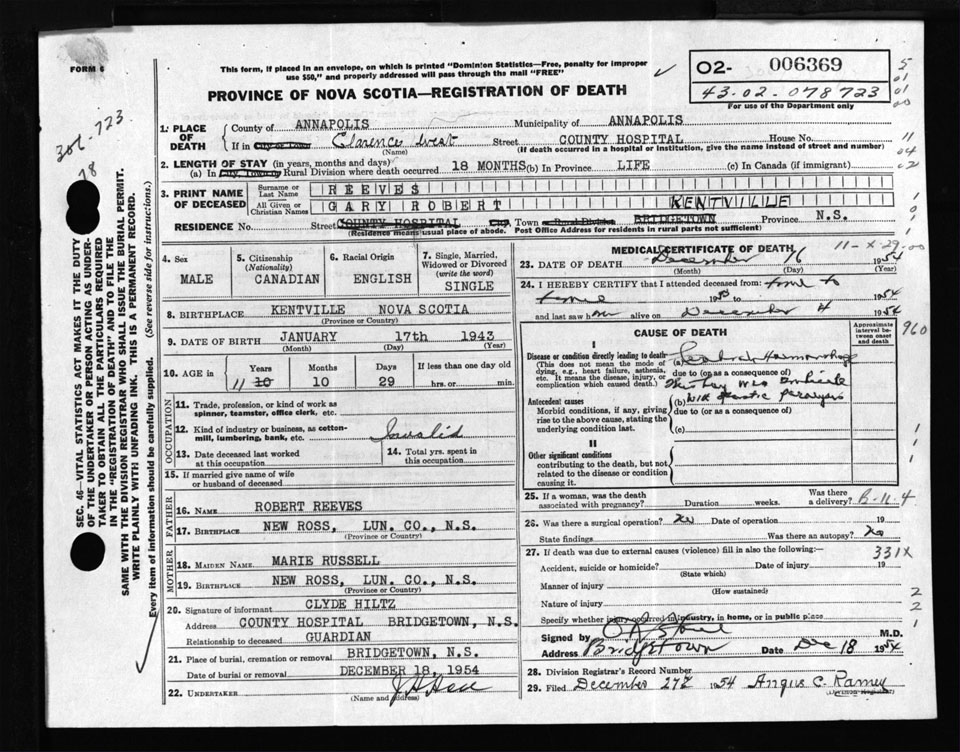 FORM 6
This form, if placed in an envelope, on which is printed "Dominion Statistics—Free, penalty for improper
use $50," and properly addressed will pass through the mail "FREE"
PROVINCE OF NOVA SCOTIA—REGISTRATION OF DEATH
O2- 006369
43-02-078723
For use of the Department only
1. PLACE OF DEATH
County of ANNAPOLIS Municipality of ANNAPOLIS
If in City or Town Clarence West Street COUNTY HOSPITAL House No.
(Name) (If death occurred in a hospital or institution, give the name instead of street and number)
2. LENGTH OF STAY (in years, months and days)
(a) In City, Town or Rural Division where death occurred 18 MONTHS (b) In Province LIFE (c) In Canada (if immigrant)
3. PRINT NAME OF DECEASED
Surname or Last Name REEVES
All Given or Christian Names GARY ROBERT
KENTVILLE
RESIDENCE No. Street COUNTY HOSPITAL City, Town or Rural Division BRIDGETOWN Province N.S.
(Residence means usual place of abode. Post Office Address for residents in rural parts not sufficient)
4. Sex
MALE
5. Citizenship (Nationality)
CANADIAN
6. Racial Origin
ENGLISH
7. Single, Married, Widowed or Divorced (write the word)
SINGLE
8. BIRTHPLACE KENTVILLE NOVA SCOTIA
(Province or Country)
9. DATE OF BIRTH JANUARY 17th 1943
(Month) (Day) (Year)
10. AGE in Years Months Days If less than one day old
11 10 10 29 hrs. or min.
OCCUPATION
11. Trade, profession, or kind of work as
spinner, teamster, office clerk, etc.
12. Kind of industry or business, as cotton-
mill, lumbering, bank, etc. Invalid
13. Date deceased last worked
at this occupation
14. Total yrs. spent in
this occupation
15. If married give name of wife
or husband of deceased
FATHER
16. NAME ROBERT REEVES
17. BIRTHPLACE NEW ROSS, LUN. CO., N.S.
(Province or Country)
MOTHER
18. MAIDEN NAME MARIE RUSSELL
19. BIRTHPLACE NEW ROSS, LUN. CO., N.S.
(Province or Country)
20. Signature of informant CLYDE HILTZ
Address COUNTY HOSPITAL BRIDGETOWN, N.S.
Relationship to deceased GUARDIAN
21. Place of burial, cremation or removal BRIDGETOWN, N.S.
Date of burial or removal DECEMBER 18, 1954
22. UNDERTAKER
(Name and address)
MEDICAL CERTIFICATE OF DEATH
11-X-29-00
23. DATE OF DEATH December 16 1954
(Month) (Day) (Year)
24. I HEREBY CERTIFY that I attended deceased from: time to
time 1954
and last saw him alive on December 1954
CAUSE OF DEATH
Approximate interval between onset and death
960
I
Disease or condition directly leading to death
(This does not mean the mode of
dying, e.g., heart failure, asthenia,
etc. It means the disease, injury, or
complication which caused death.)
(a)
due to (or as a consequence of)
Antecedent causes
Morbid conditions, if any, giving
rise to the above cause, stating the
underlying condition last.
(b)
due to (or as a consequence of)
(c)
II
Other significant conditions
contributing to the death, but not
related to the disease or condition
causing it.
25. If a woman, was the death
associated with pregnancy? Duration weeks. Was there
a delivery? B-11-4
26. Was there a surgical operation? No Date of operation 19
State findings Was there an autopsy? No
27. If death was due to external causes (violence) fill in also the following:— 331X
Accident, suicide or homicide? Date of injury 19
(State which)
Manner of injury
(How sustained)
Nature of injury
Specify whether injury occurred in industry, in home, or in public place
Signed by M.D.
Address Bridgetown Date Dec 18 1954
28. Division Registrar's Record Number
29. Filed December 27 1954 Angus C. Ramey
(Division Registrar)
SEC. 46—VITAL STATISTICS ACT MAKES IT THE DUTY
OF THE UNDERTAKER OR PERSON ACTING AS UNDER-
TAKER TO OBTAIN ALL THE PARTICULARS REQUIRED
IN THE "REGISTRATION OF DEATH" AND TO FILE THE
SAME WITH THE DIVISION REGISTRAR WHO SHALL ISSUE THE BURIAL PERMIT.
WRITE PLAINLY WITH UNFADING INK. THIS IS A PERMANENT RECORD.
Every item of information should be carefully supplied. (See reverse side for instructions.)